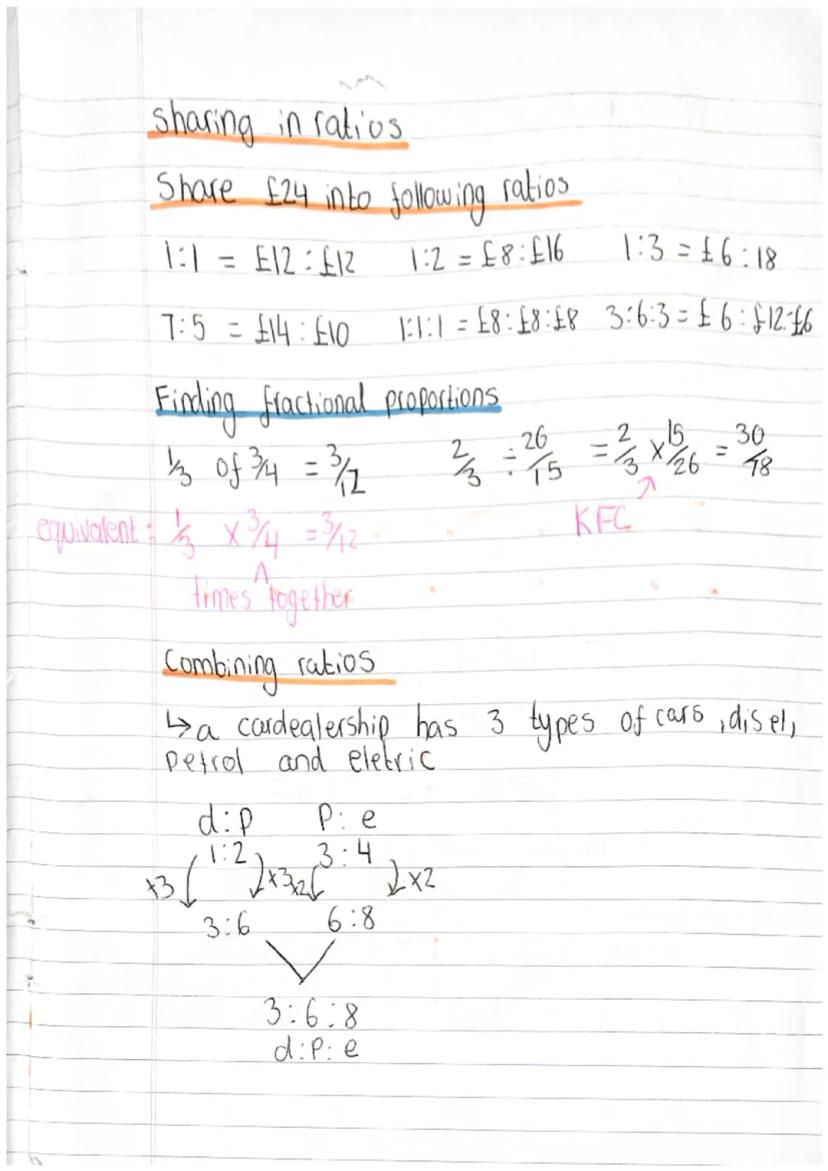 Sharing in ratios
Share £24 into following ratios
1:1 = £12 : £12 1:2 = £8 : £16 1:3 = £6 : 18
7:5 = £14 : £10 1:1:1 = £8 : £8 : £8 3:6:3 = £6 : £12 : £6
Finding fractional proportions
1/3 of 3/4 = 3/12 2/3 ÷ 26/15 = 2/3 × 15/26 = 30/78
equivalent : 1/3 × 3/4 = 3/12 KFC
times together
Combining ratios
↳ a cardealership has 3 types of cars , disel,
petrol and eletric
d:p P:e
1:2 3:4
×3 ×3 ×2 ×2
3:6 6:8
3:6:8
d:P:e